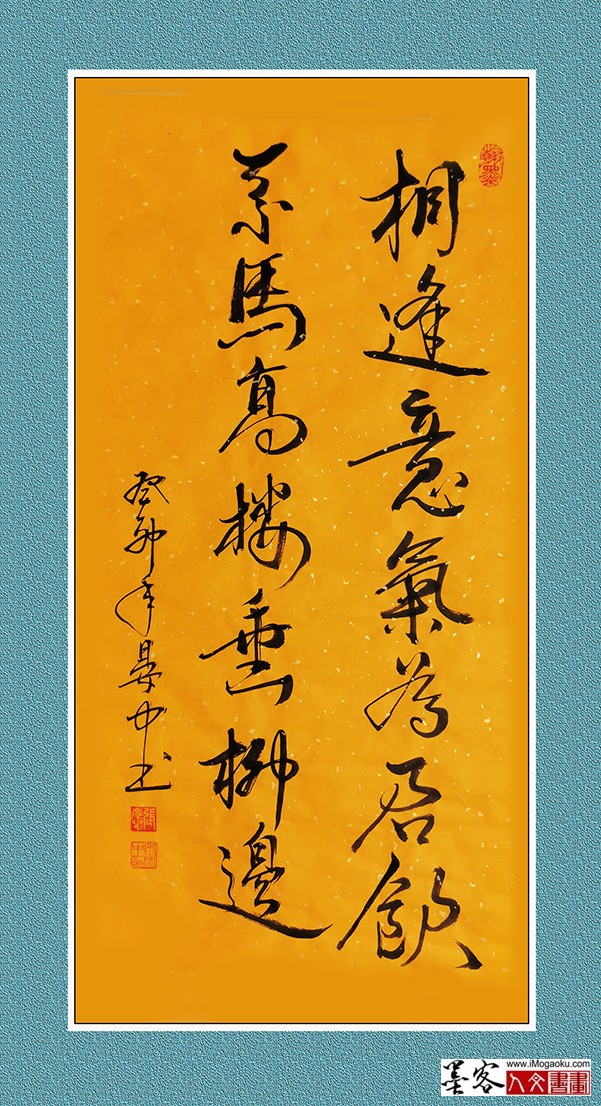 相逢意氣為君飲
系馬高樓垂柳邊
癸卯年晏中书
翰墨
墨客
www.iMogaoku.com
人文書畫